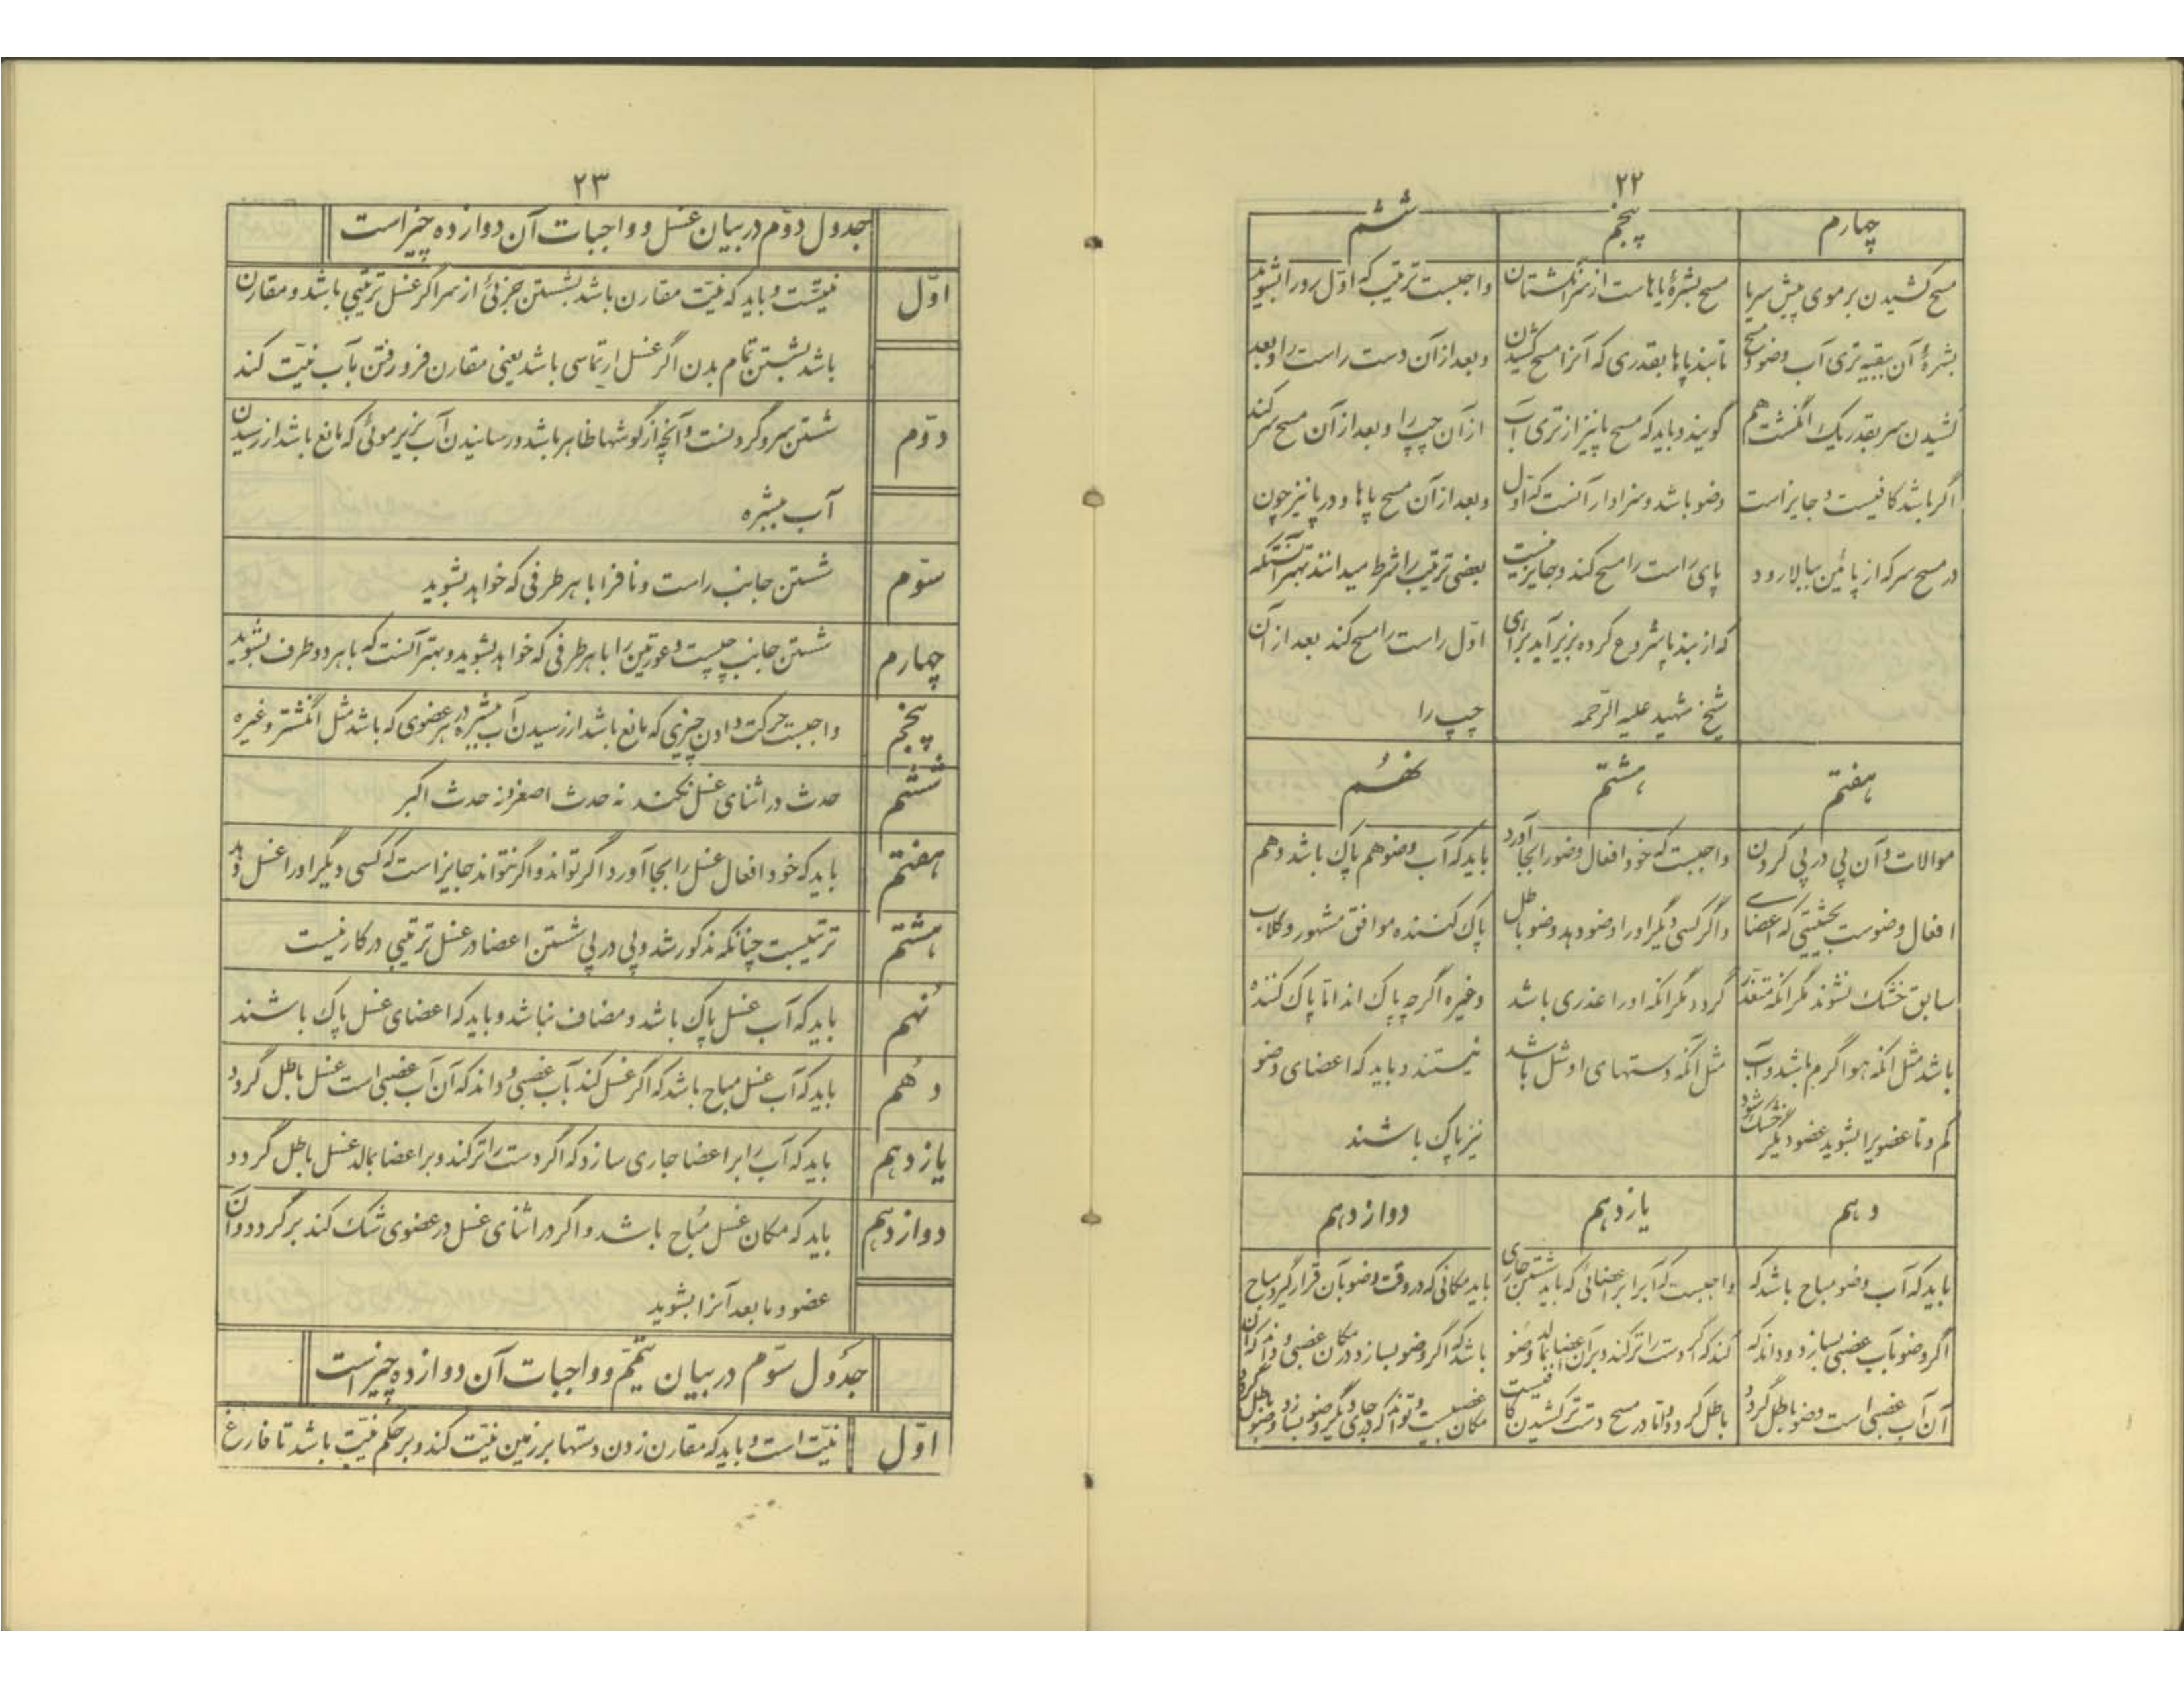 ۲۲
چهارم
مسح کشیدن بر موی پیش سر یا
بشرهٔ آن ببقیه تری آب وضو و مسح
کشیدن سر بقدر یک انگشت هم
اگر باشد کافیست و جایز است
در مسح سر که از پائین ببالا رود
پنجم
مسح بشرهٔ پاهاست از سر انگشتان
تا بند پاها بقدری که آنرا مسح کشیدن
گویند و باید که مسح پا نیز از تری آب
وضو باشد و سزاوار آنست که اول
پای راست را مسح کند و جایز نیست
که از بند پا شروع کرده بزیر آید برای
شیخ شهید علیه الرّحمه
ششم
واجبست ترتیب که اوّل رو را بشوید
و بعد از آن دست راست را و بعد
از آن چپ را و بعد از آن مسح سر کند
و بعد از آن مسح پاها و در پا نیز چون
بعضی ترتیب را شرط میدانند بهتر آنستکه
اوّل راست را مسح کند بعد از آن
چپ را
هفتم
موالات و آن پی در پی کردن
افعال وضوست بحیثیتی که اعضای
سابق خشک نشوند مگر آنکه متعذر
باشد مثل آنکه هوا گرم باشد و آب
کم و تا عضویرا بشوید عضو دیگر خشک شود
هشتم
واجبست که خود افعال وضو را بجا آورد
و اگر کسی دیگر او را وضو دهد وضو باطل
گردد مگر آنکه او را عذری باشد
مثل آنکه دستهای او شل باشد
نهُم
باید که آب وضو هم پاک باشد و هم
پاک کننده موافق مشهور و گلاب
و غیره اگر چه پاک اند امّا پاک کننده
نیستند و باید که اعضای وضو
نیز پاک باشند
دهم
باید که آب وضو مباح باشد که
اگر وضو بآب غصبی بسازد و داند که
آن آب غصبی است وضو باطل گردد
یازدهم
واجبست که آبرا بر اعضائی که باید شستن جاری
کند که اگر دست را تر کند و بر آن اعضا بمالد وضو
باطل گردد و امّا در مسح دست تر کشیدن کافیست
دوازدهم
باید مکانی که در وقت وضو بآن قرار گیرد مباح
باشد که اگر وضو بسازد در مکان غصبی و داند که آن
مکان غصبیست و تواند که در جای دیگر وضو بسازد وضو باطل گردد
۲۳
جدول دوّم در بیان غسل و واجبات آن دوازده چیز است
اوّل
نیّتست و باید که نیّت مقارن باشد بشستن جزئی از سر اگر غسل ترتیبی باشد و مقارن
باشد بشستن تمام بدن اگر غسل ارتماسی باشد یعنی مقارن فرو رفتن بآب نیّت کند
دوّم
شستن سر و گردنست و آنچه از گوشها ظاهر باشد و رسانیدن آب بزیر موئی که مانع باشد از رسیدن
آب ببشره
سوّم
شستن جانب راست و ناف را با هر طرفی که خواهد بشوید
چهارم
شستن جانب چپست و عورتین را با هر طرفی که خواهد بشوید و بهتر آنست که با هر دو طرف بشوید
پنجم
واجبست حرکت دادن چیزی که مانع باشد از رسیدن آب ببشره در هر عضوی که باشد مثل انگشتر و غیره
ششم
حدث در اثنای غسل نکند نه حدث اصغر و نه حدث اکبر
هفتم
باید که خود افعال غسل را بجا آورد اگر تواند و اگر نتواند جایز است که کسی دیگر او را غسل دهد
هشتم
ترتیبست چنانکه مذکور شد و پی در پی شستن اعضا در غسل ترتیبی در کار نیست
نُهم
باید که آب غسل پاک باشد و مضاف نباشد و باید که اعضای غسل پاک باشند
دهُم
باید که آب غسل مباح باشد که اگر غسل کند بآب غصبی و داند که آن آب غصبی است غسل باطل گردد
یازدهم
باید که آب را بر اعضا جاری سازد که اگر دست را تر کند و بر اعضا بمالد غسل باطل گردد
دوازدهم
باید که مکان غسل مُباح باشد و اگر در اثنای غسل در عضوی شک کند برگردد و آن
عضو و ما بعد آنرا بشوید
جدول سوّم در بیان تیمّم و واجبات آن دوازده چیز است
اوّل
نیّت است و باید که مقارن زدن دستها بر زمین نیّت کند و بر حکم نیّت باشد تا فارغ